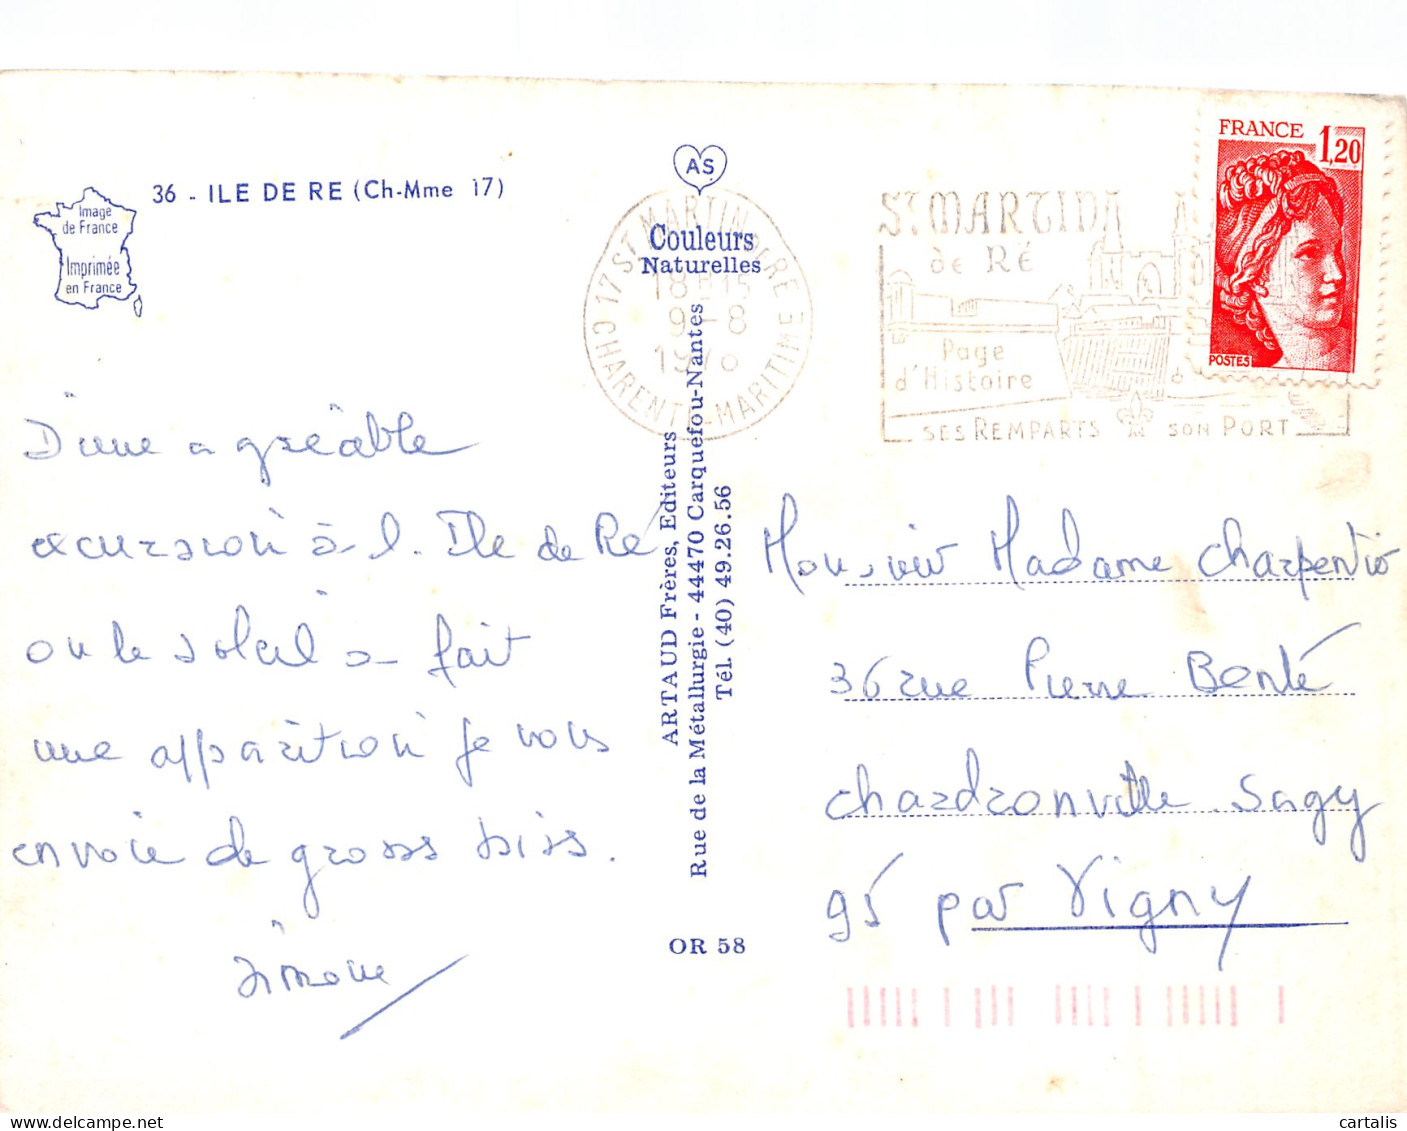 36 - ILE DE RE (Ch-Mme 17)
Image
de France
Imprimée
en France
D'une agréable
excursion à l'Ile de Ré
ou le soleil a fait
une apparition je vous
envoie de gross biss.
Simone
AS
Couleurs
Naturelles
ARTAUD Frères, Editeurs
Rue de la Métallurgie - 44470 Carquefou-Nantes
Tél. (40) 49.26.56
OR 58
17 ST MARTIN DE RE
18H15
9-8
1978
CHARENTE MARITIME
ST MARTIN
de Ré
Page
d'Histoire
SES REMPARTS SON PORT
FRANCE 1,20
POSTES
Monsieur Madame Charpentier
36 rue Pierre Bonté
chardronville Sagy
95 par Vigny
cartalis